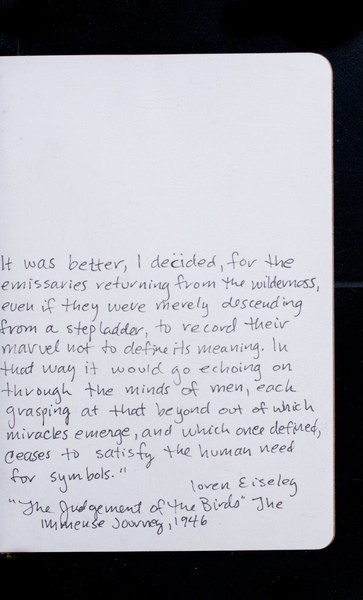 It was better, I decided, for the
emissaries returning from the wilderness,
even if they were merely descending
from a stepladder, to record their
marvel not to define its meaning. In
that way it would go echoing on
through the minds of men, each
grasping at that beyond out of which
miracles emerge, and which once defined,
ceases to satisfy the human need
for symbols."
loren Eiseley
"The Judgement of the Birds" The
Immense Journey, 1946